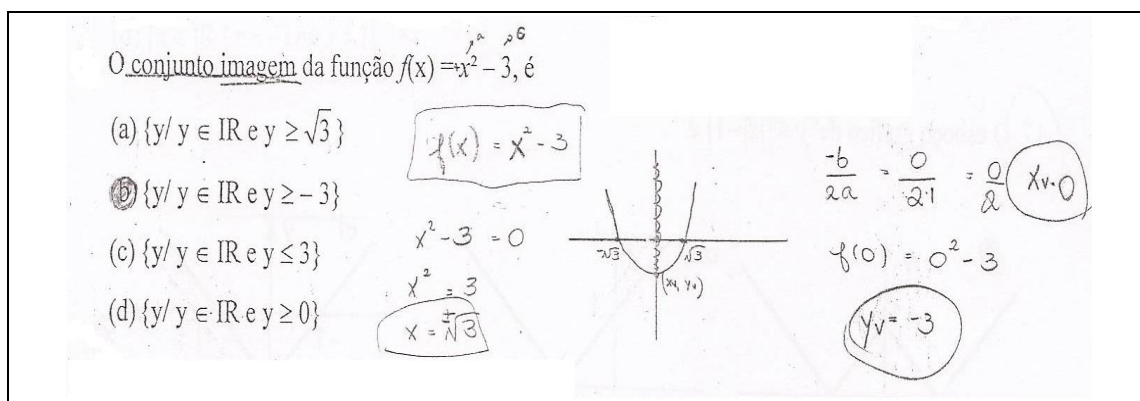 a c
O conjunto imagem da função f(x) =+x² – 3, é
(a) {y/ y ∈ IR e y ≥ √3}
(b) {y/ y ∈ IR e y ≥ – 3}
(c) {y/ y ∈ IR e y ≤ 3}
(d) {y/ y ∈ IR e y ≥ 0}
f(x) = x² - 3
x² - 3 = 0
x² = 3
x = ±√3
-√3 √3
(xv, yv)
-b/2a = 0/2·1 = 0/2 Xv=0
f(0) = 0² - 3
Yv = -3